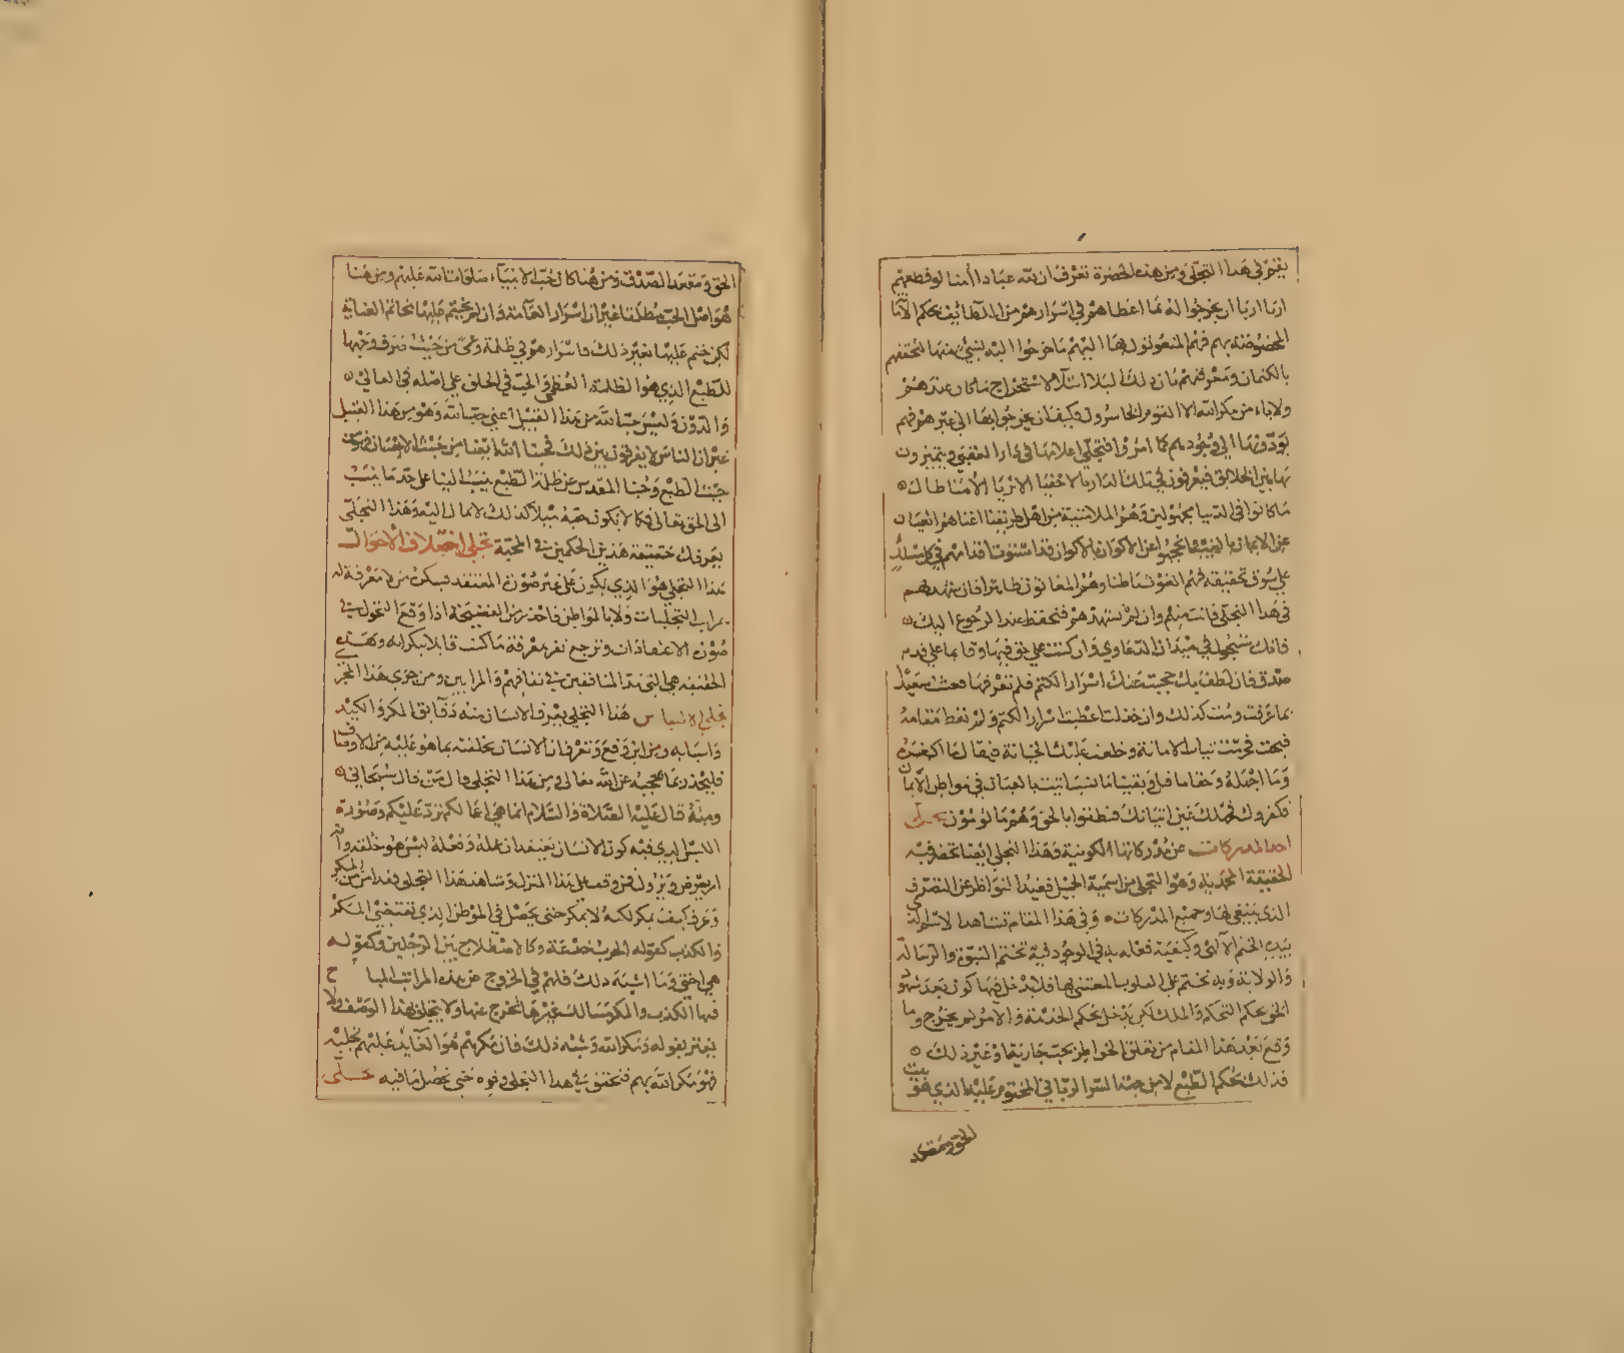 يغز في هذا التجلي ومن هذه الحضرة تعرف ان لله عبادا أمنا لو قطعهم
اربا اربا ان يخرجوا له مما اعطاهم في اسرارهم من اللطائف بحكم الامانة
المخصوصة بهم فهم المنعوتون بها اليهم ما خرجوا اليه بشي منها لتحققهم
بالكتمان ومعرفتهم بان ذلك البلا ابتلا لاستخراج ما كان عندهم
ولا يامن مكر الله الا القوم الخاسرون وكيف ان يخرجوا بها الى غيرهم فهم
يؤدونها الى وجودهم كما امروا فتجلي اعلامها في دار العقبى ويتميزون
بها بين الخلايق فيعرفون في تلك الدار بالاخفيا الابريا الامنا طال
ما كانوا في الدنيا مجهولين وهم الملامتية من اهل طريقنا اغناهم العيان
عن الايمان بالغيب وانحجبوا عن الاكوان بالاكوان قد استوت اقدامهم في كل مسلك
على سوق تحقيقه فهم الغوث باطنا وهم المغاثون ظاهرا فان شهدهم
في هذا التجلي فانت منهم وان لم تشهدهم فتحفظ عند الرجوع اليك
فانك ستجول في ميدان الدعاوي وان كنت على حق فيها وقايما على قدم
صدق فان لطف بك حجبت عنك اسرار الكتم فلم تعرفها فعشت سعيدا
بما عرفت ومت كذلك وان خذلت اعطيت اسرار الكتم ولم تعط مقامه
فبحت فحرمت ثياب الامانة وخلعت عليك الخيانة فيقال ما اكفره
وما اجهله وحقا ما قيل ويقينا ما نسب اتيت بالعيان في مواطن الايمان
فكفروك فجهلك عين اتيانك فنطقوا بالحق وهم ماثومون تجلي
اخذ المدركات عن مدركاتها الكونية وهذا التجلي ايضا تحضر فيه
الحقيقة المحمدية وهو التجلي من اسمية الجبل فيعيد النواظر عن التصرف
الذي ينبغي لها وجميع المدركات وفي هذا المقام تشاهد الاسم الذي
بيده الختم الالهي وكيفية فعله به في الوجود فبه تختم النبوة والرسالة
والولاية وبه تختم على القلوب المعتنى بها فلا يدخل فيها كون بعد شهود
الحق بحكم التحكم والملك لكن يدخل بحكم الخدمة والامر ثم يخرج وما
وقع بعد هذا المقام من تعلق الخواطر بحب جارية او غير ذلك
فذلك بحكم الطبع لا من جهة السر الرباني المختوم عليه الذي هو بيت
الحق ومقعد
الحق ومقعد الصدق ومن هنا كان حب الانبياء صلوات الله عليهم ومن هنا
هو اصل الحب مطلقا غير ان اسرار العامة وان لم يختم عليها بخاتم العناية
لكن ختم عليها بغير ذلك فاسرارهم في ظلمة وعمى من حيث صرف وجهها
للطبع الذي هو الظلمة العظمى والحب في الخلق على اصله في العالي
والدون وليس حب الله من هذا القبيل اعني حبنا لله وهو من هذا القبيل
غير ان الناس لا يفرقون بين ذلك فحبنا لله ايضا من حيث الاحسان فهو من
حيث الطبع وحبنا المقدس عن ظلمة الطبع ينسب الينا على حد ما ينسب
الى الحق تعالى فكما لا يكون حبه ميلا كذلك لا يمال اليه وهذا التجلي
يعرفك حقيقة هذين الحكمين في المحبة تجلي اختلاف الاحوال
هذا التجلي هو الذي يكون على غير صورة المعتقد فينكره من لا معرفة له
بمراتب التجليات ولا بالمواطن فاحذر من الفضيحة اذا وقع التحول في
صورة الاعتقادات وترجع تقر بمعرفة ما كنت قايلا بنكرانه وهذه
الحقيقة هي التي تمد المنافقين في نفاقهم والمرايين ومن جرى هذا المجرى
تجلي الالتباس هذا التجلي يعرف الانسان منه دقايق المكر والكيد
واسبابه ومن اين وقع وتعرف ان الانسان بخلقته بما هو عليه من الاوصاف
فليحذر مما يحجبه عن الله تعالى ومن هذا التجلي قال من قال سبحاني
ومنه قال عليه الصلاة والسلام انما هي اعمالكم ترد عليكم وصورة
اللبس الذي فيه كون الانسان يعتقد ان عمله وفعله ليس هو خلقته وانه
امر يعرض ويزول فمن وقف على هذا المنزل وشاهد هذا التجلي فقد امن من المكر
وعرف كيف يمكر لكنه لا يمكر حتى يحصل في الموطن الذي يقتضي المكر
والكذب كقوله الحرب خدعة وكالاصطلاح بين الرجلين وكقوله
هي اختي وما اشبه ذلك فلهم في الخروج عن هذه المراتب المباح
فيها الكذب والمكر مسالك غيرها الخروج عنها ولا يتجلى بهذا الوصف ولا
يغتر بقوله ومكر الله وشبه ذلك فان مكرهم هو العايد عليهم بجلبه
فهو مكر الله بهم فتحقق في هذا التجلي وقوه حتى تحصل ما فيه تجلي